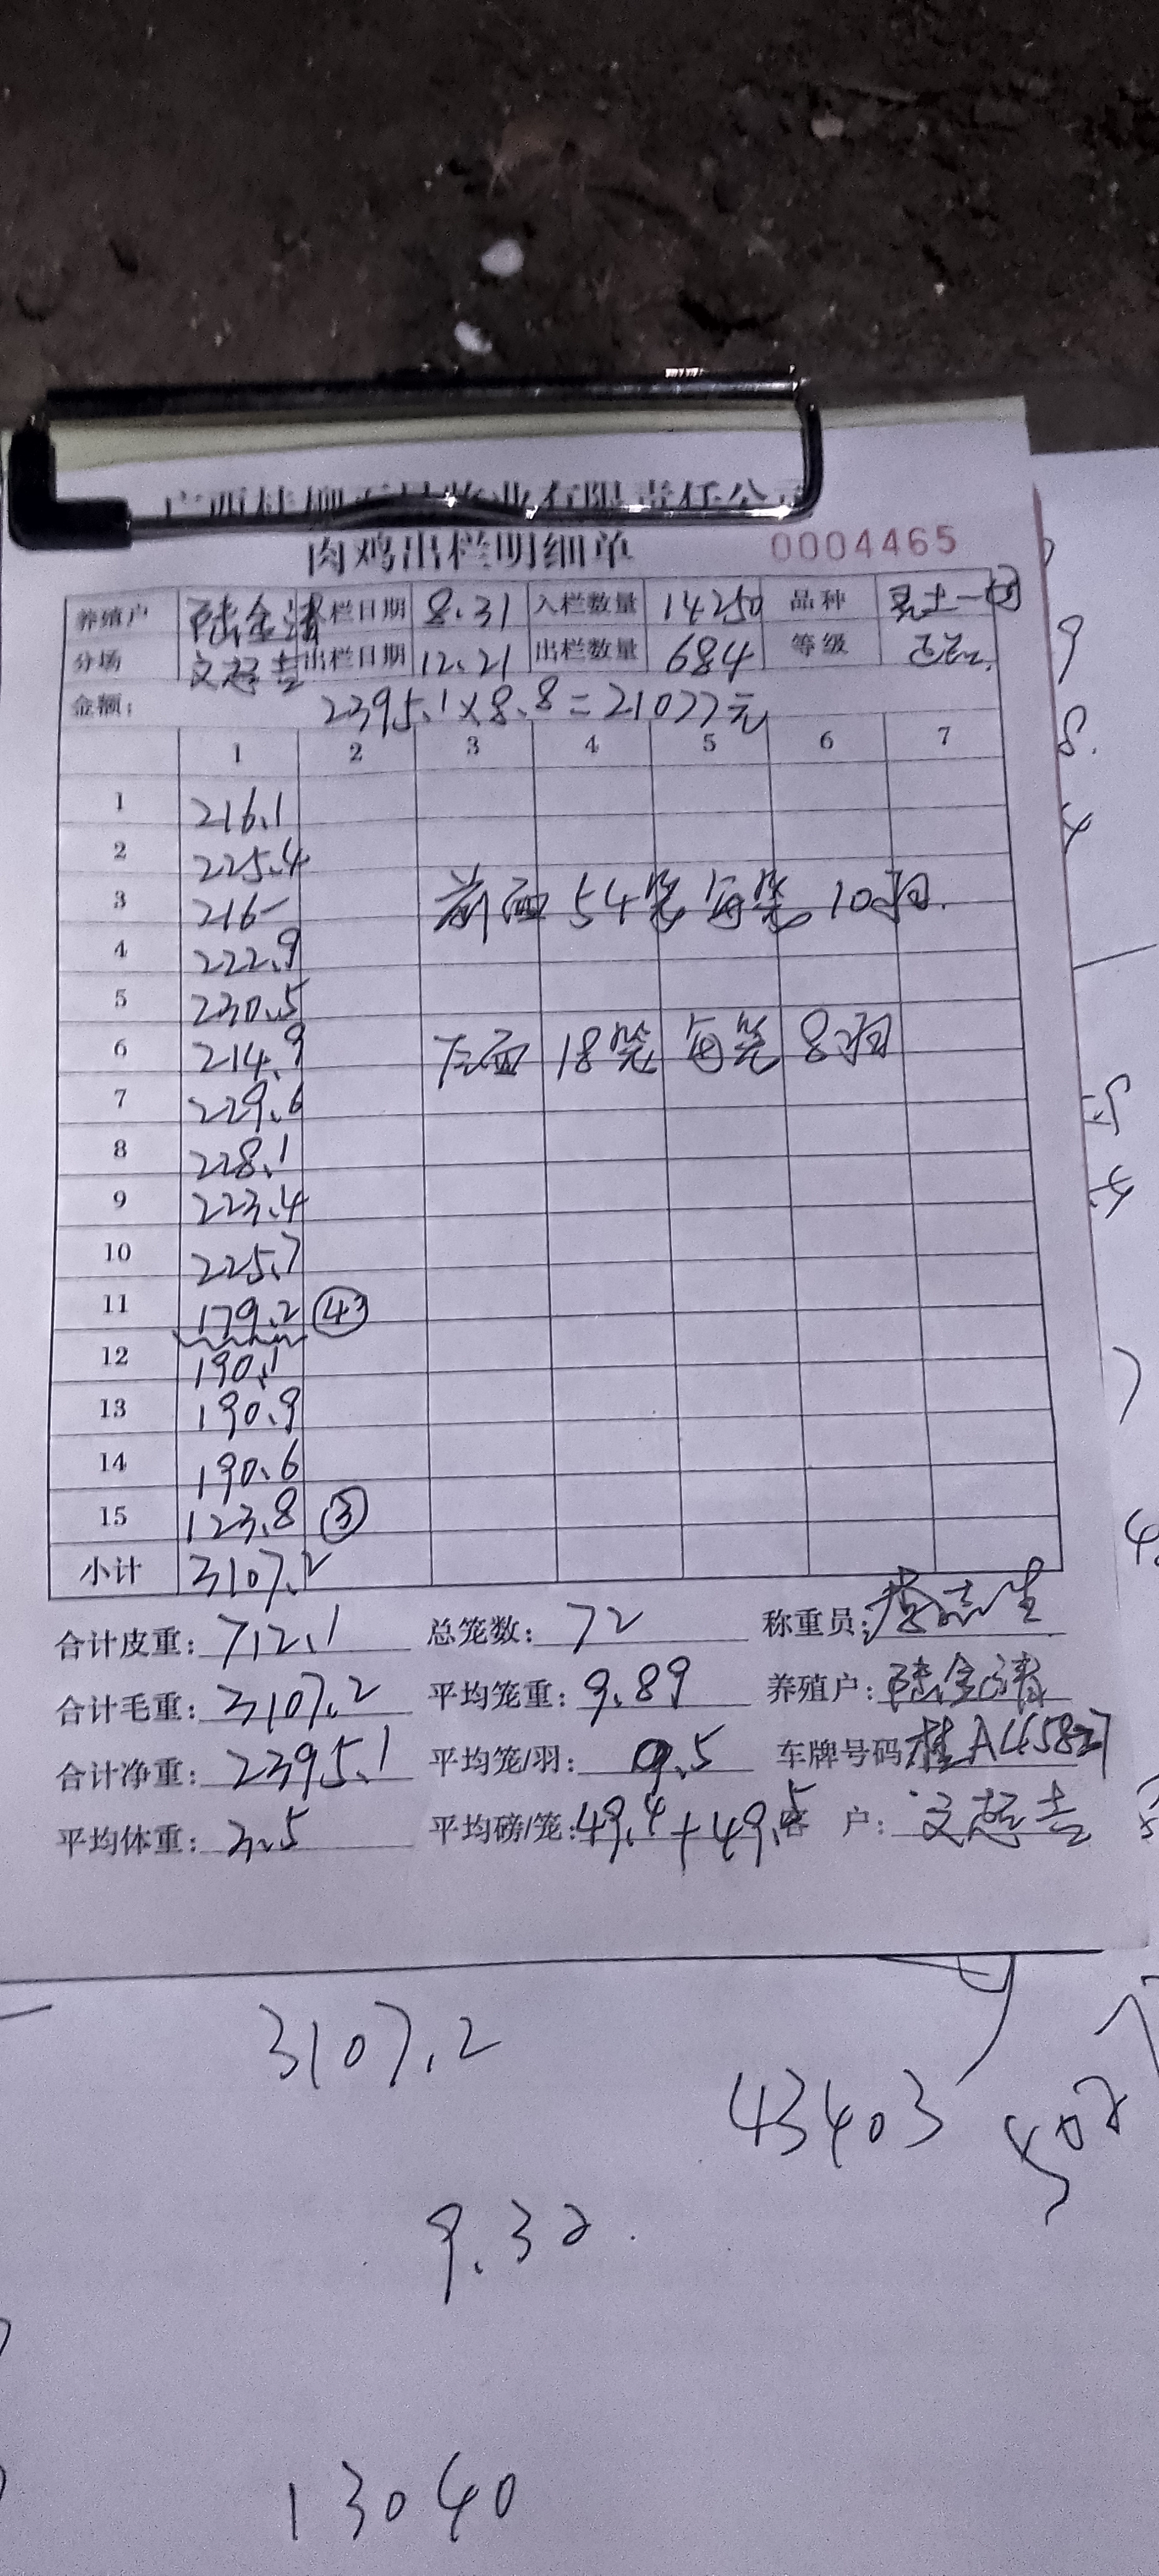 肉鸡出栏明细单 0004465
养殖户 陆金清 栏日期 8.31 入栏数量 14250 品种
分场 文超吉 出栏日期 12.21 出栏数量 684 等级
金额: 2395.1×8.8=21077元
1 2 3 4 5 6 7
1 216.1
2 225.4
3 216- 前面54笼每笼10羽.
4 222.9
5 230.5
6 214.9 后面18笼每笼8羽
7 229.6
8 228.1
9 223.4
10 225.7
11 179.2 ④
12 190.1
13 190.9
14 190.6
15 123.8 ③
小计 3107.2
合计皮重: 712.1 总笼数: 72 称重员:
合计毛重: 3107.2 平均笼重: 9.89 养殖户: 陆金清
合计净重: 2395.1 平均笼/羽: 9.5 车牌号码 桂A458
平均体重: 3.5 平均磅/笼: 49.4+49.5 客 户: 文超吉
3107.2
43403
9.32
13040